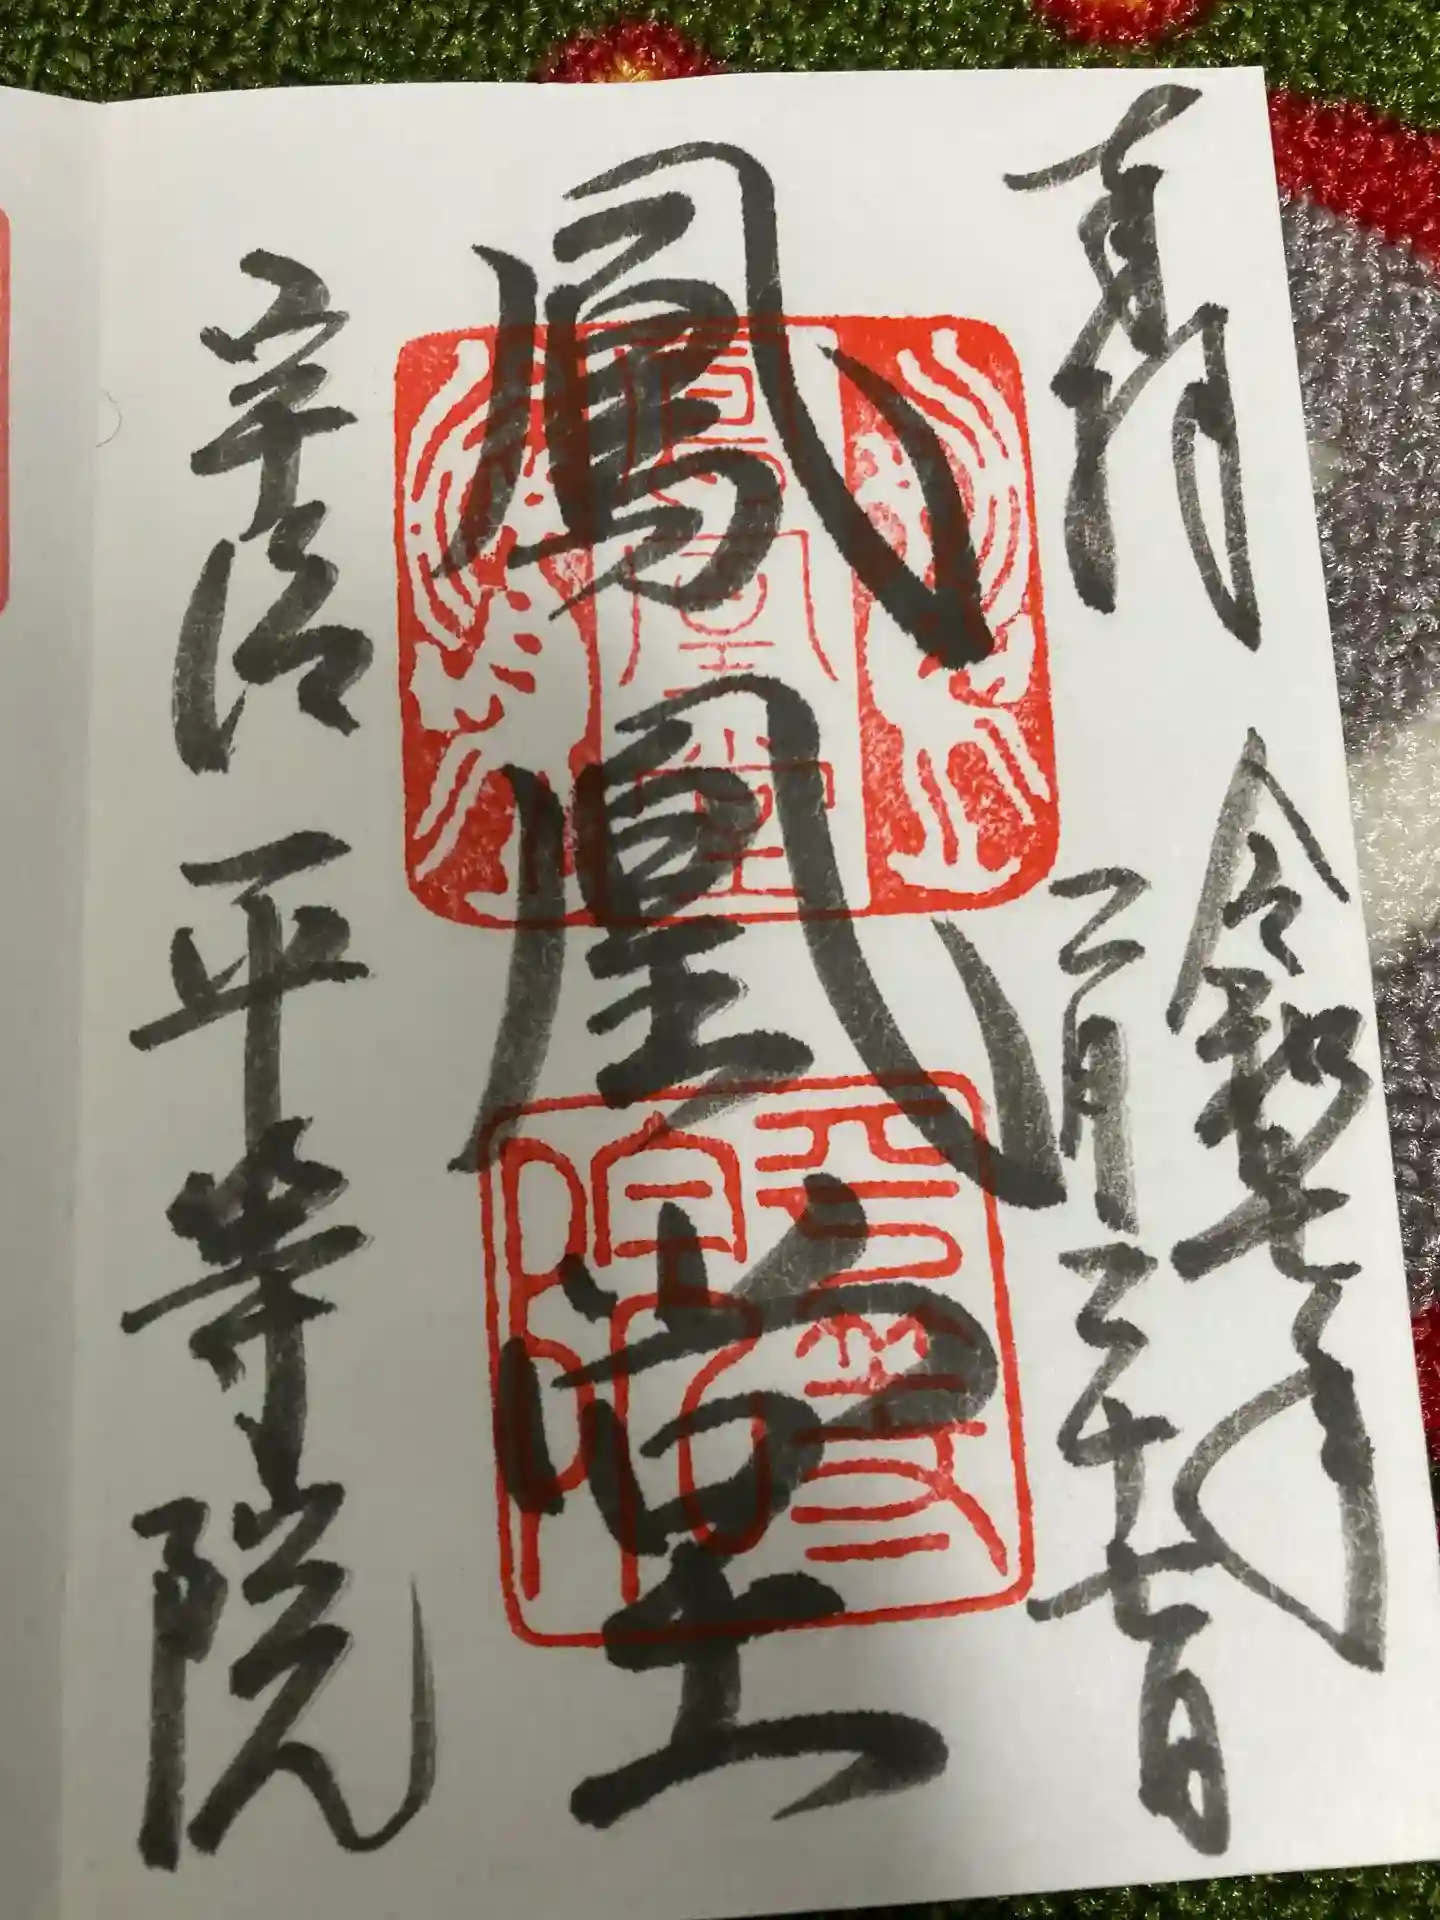 奉拝
令和七年
二月二十七日
鳳凰堂
宇治 平等院
鳳凰堂
平等院印